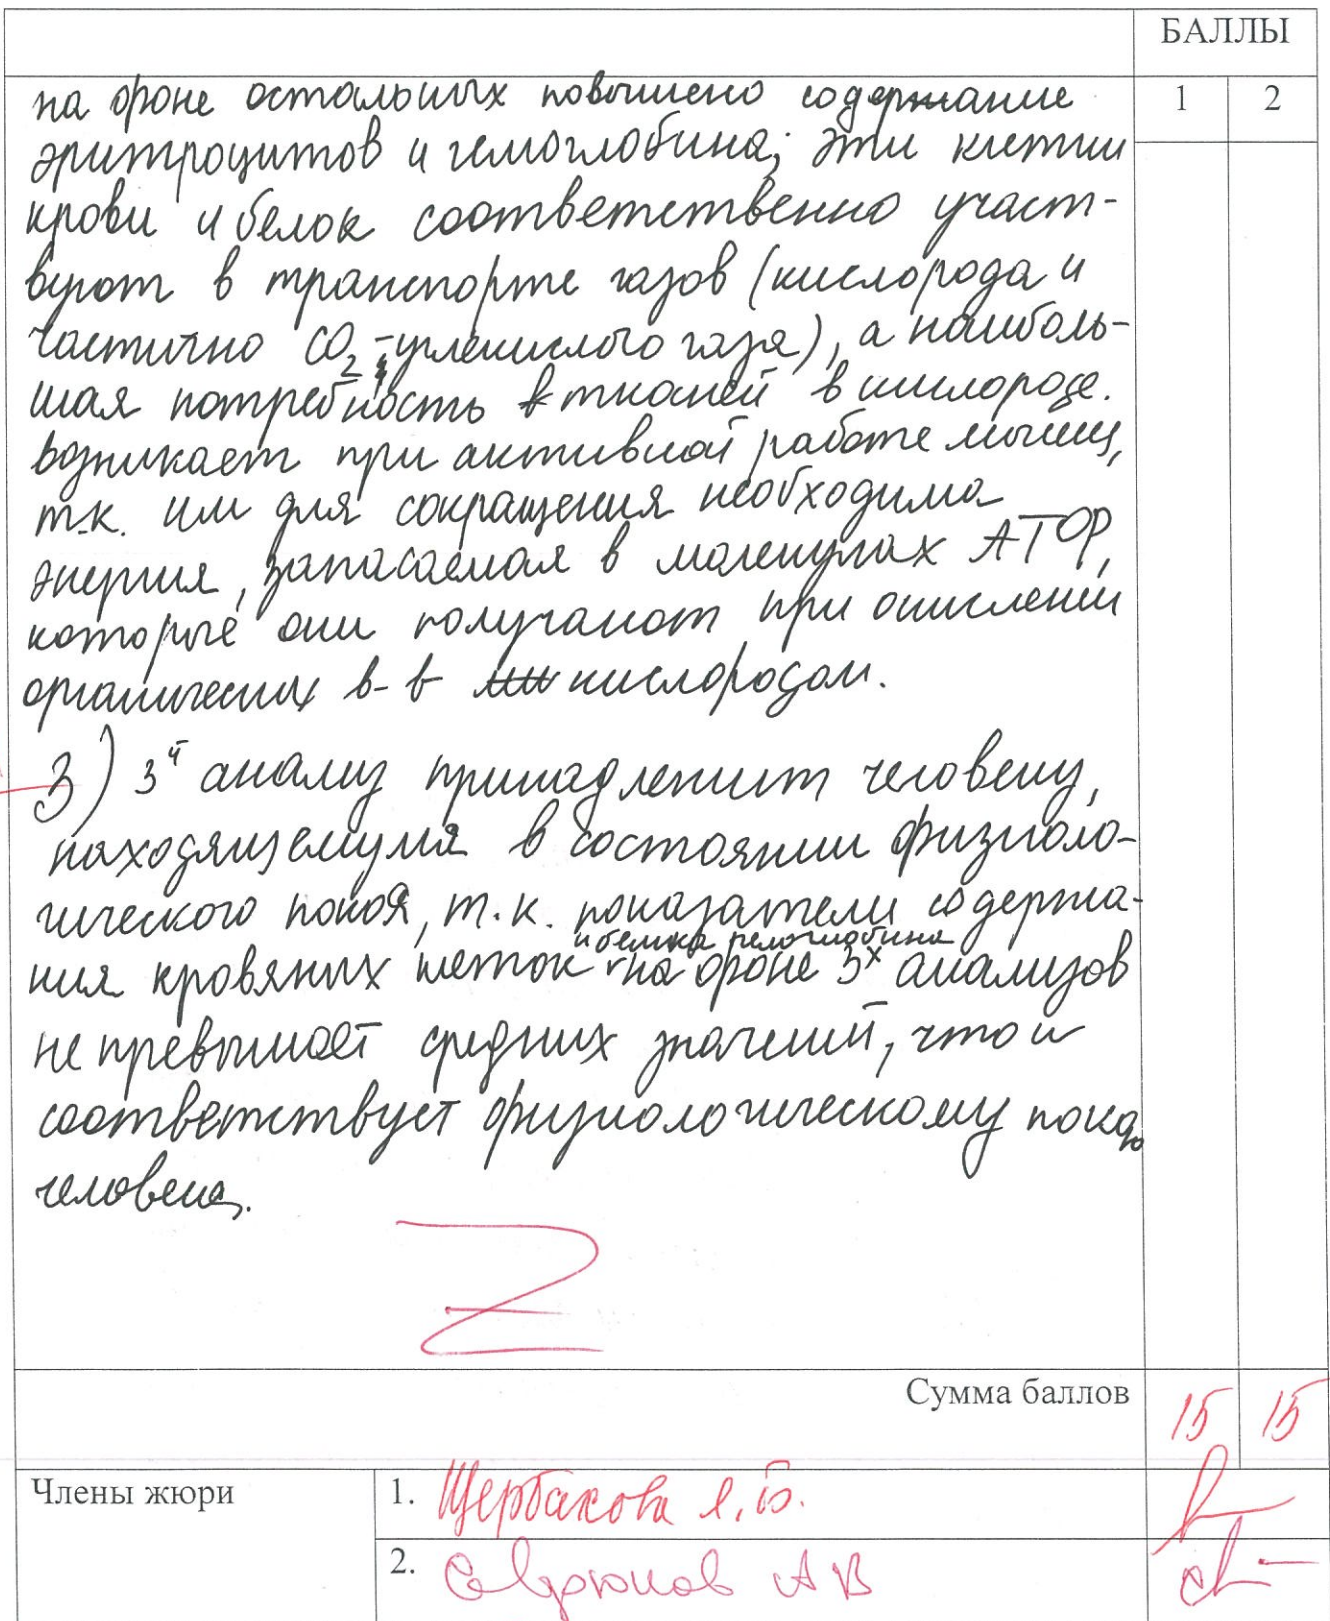 БАЛЛЫ
1 2
на фоне остальных повышено содержание
эритроцитов и гемоглобина; эти клетки
крови и белок соответственно участ-
вуют в транспорте газов (кислорода и
частично CO2 - углекислого газа), а наиболь-
шая потребность тканей в кислороде.
возникает при активной работе мышц,
т.к. им для сокращения необходима
энергия, запасаемая в молекулах АТФ,
которые они получают при окислении
органических в-в кислородом.
3) 3й анализ принадлежит человеку,
находящемуся в состоянии физиоло-
гического покоя, т.к. показатели содержа-
и белка гемоглобина
ния кровяных клеток на фоне 3х анализов
не превышает средних значений, что и
соответствует физиологическому покою
человека.
Z
Сумма баллов 15 15
Члены жюри 1. Щербакова
2. А В